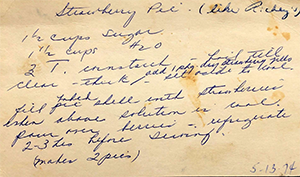 Strawberry Pie. (like Richey's)
1½ cups sugar
1½ cups H20
3 T. cornstarch - boil till
clear - thick - add 1 pkg. dry strawberry jello
set aside to cool
fill baked pie shell with strawberries
when above solution is cool.
pour over berries refrigerate
2-3 hrs before serving
(makes 2 pies)
5-13-74